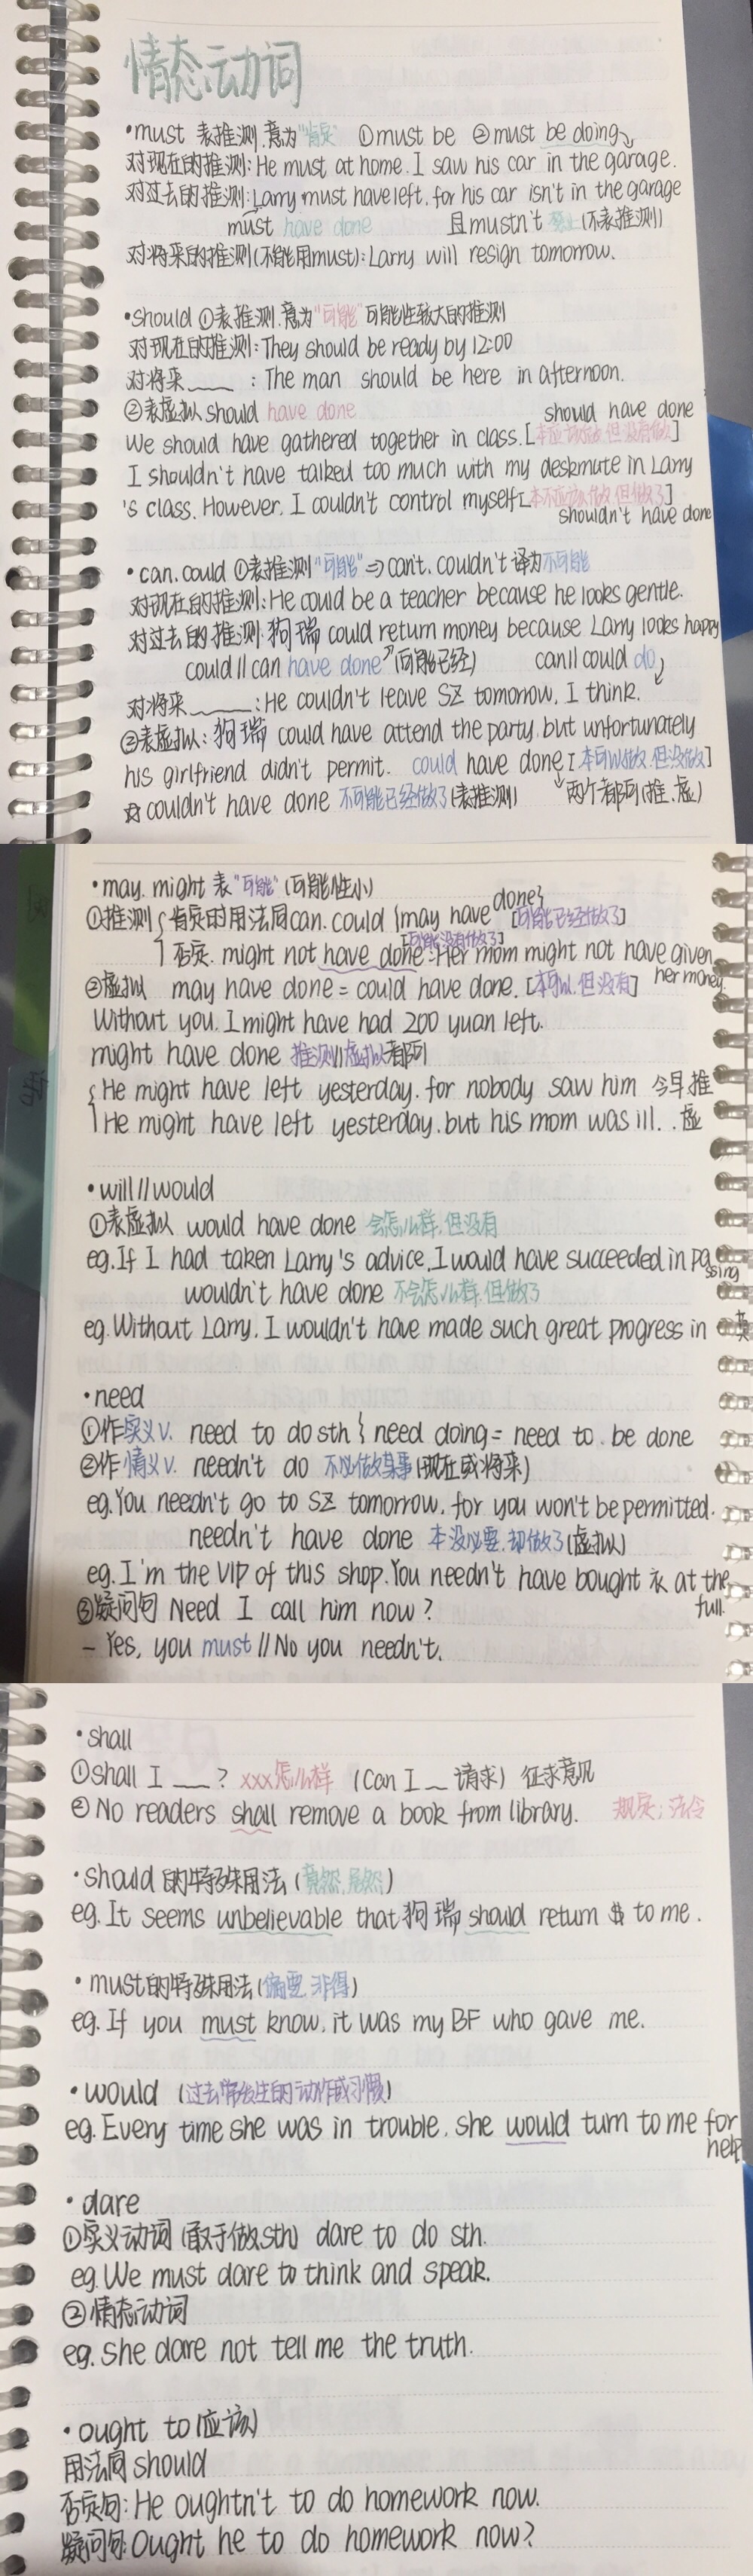 情态动词
•must 表推测.意为"肯定" ①must be ②must be doing
对现在的推测:He must at home. I saw his car in the garage.
对过去的推测:Larry must have left. for his car isn't in the garage
must have done 且mustn't 禁止(不表推测)
对将来的推测(不能用must):Larry will resign tomorrow.
•should ①表推测.意为"可能"可能性较大的推测
对现在的推测:They should be ready by 12:00
对将来____ : The man should be here in afternoon.
②表虚拟 should have done should have done
We should have gathered together in class.[本应该做.但没有做]
I shouldn't have talked too much with my deskmute in Larry
's class. However. I couldn't control myself[本不应该做.但做了]
shouldn't have done
•can. could ①表推测"可能"⇒can't. couldn't 译为不可能
对现在的推测:He could be a teacher because he looks gentle.
对过去的推测:狗瑞 could return money because Larry looks happy
could // can have done (可能已经) can // could do
对将来____:He couldn't leave SZ tomorrow, I think.
②表虚拟:狗瑞 could have attend the party. but unfortunately
his girlfriend didn't permit. could have done [本可以做.但没做]
☆ couldn't have done 不可能已经做了(表推测) 两个都可(推.虚)
•may. might 表"可能"(可能性小)
①推测{肯定时用法同can. could {may have done} [可能已经做了]
[可能没有做了]
否定. might not have done :Her mom might not have given
her money.
②虚拟 may have done = could have done. [本可以.但没有]
Without you. I might have had 200 yuan left.
might have done 推测//虚拟都可
{He might have left yesterday. for nobody saw him 今早推
He might have left yesterday. but his mom was ill. . 虚
•will // would
①表虚拟 would have done 会怎么样.但没有
eg. If I had taken Larry's advice, I would have succeeded in passing
wouldn't have done 不会怎么样.但做了
eg. Without Larry. I wouldn't have made such great progress in
•need
①作实义v. need to do sth { need doing = need to . be done
②作情义v. needn't do 不必做某事(现在或将来)
eg. You needn't go to SZ tomorrow. for you won't be permitted.
needn't have done 本没必要.却做了(虚拟)
eg. I'm the VIP of this shop. You needn't have bought 衣 at the
full.
③疑问句 Need I call him now ?
– Yes, you must // No you needn't.
•shall
①shall I ___ ? xxx怎么样 (Can I _ 请求) 征求意见
②No readers shall remove a book from library. 规定;法令
•should 的特殊用法(竟然.居然)
eg. It seems unbelievable that 狗瑞 should return $ to me .
•must的特殊用法(偏要.非得)
eg. If you must know, it was my BF who gave me.
•would (过去常发生的动作或习惯)
eg. Every time she was in trouble. she would turn to me for
help
•dare
①实义动词 (敢于做sth) dare to do sth.
eg. We must dare to think and speak.
②情态动词
eg. She dare not tell me the truth.
•ought to(应该)
用法同 should
否定句: He oughtn't to do homework now.
疑问句: Ought he to do homework now ?